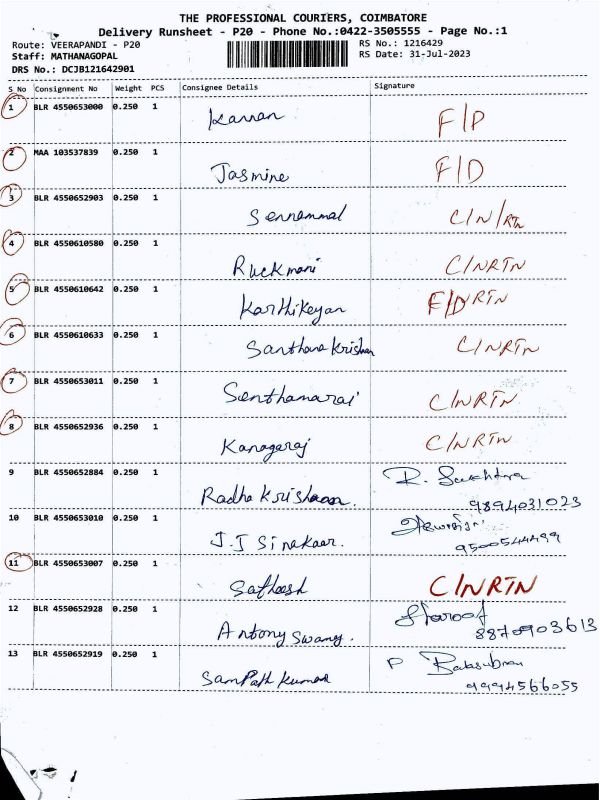 THE PROFESSIONAL COURIERS, COIMBATORE
Delivery Runsheet - P20 - Phone No.:0422-3505555 - Page No.:1
Route: VEERAPANDI - P20 RS No.: 1216429
Staff: MATHANAGOPAL RS Date: 31-Jul-2023
DRS No.: DCJB121642901
S No Consignment No Weight PCS Consignee Details Signature
1 BLR 4550653000 0.250 1 Kannan F/P
2 MAA 103537839 0.250 1 Jasmine F/D
3 BLR 4550652903 0.250 1 Sennammal C/N/RTN
4 BLR 4550610580 0.250 1 Ruckmani C/NRTN
5 BLR 4550610642 0.250 1 Karthikeyan F/D RTN
6 BLR 4550610633 0.250 1 Santhana Krishnan C/NRTN
7 BLR 4550653011 0.250 1 Senthamarai C/NRTN
8 BLR 4550652936 0.250 1 Kanagaraj C/NRTN
9 BLR 4550652884 0.250 1 Radha Krishnan. R.
9894031023
10 BLR 4550653010 0.250 1 J.J
9500544499
11 BLR 4550653007 0.250 1 Satheesh C/NRTN
12 BLR 4550652928 0.250 1 Antony Swamy.
8870903613
13 BLR 4550652919 0.250 1 Sampath Kumar P
9994566055